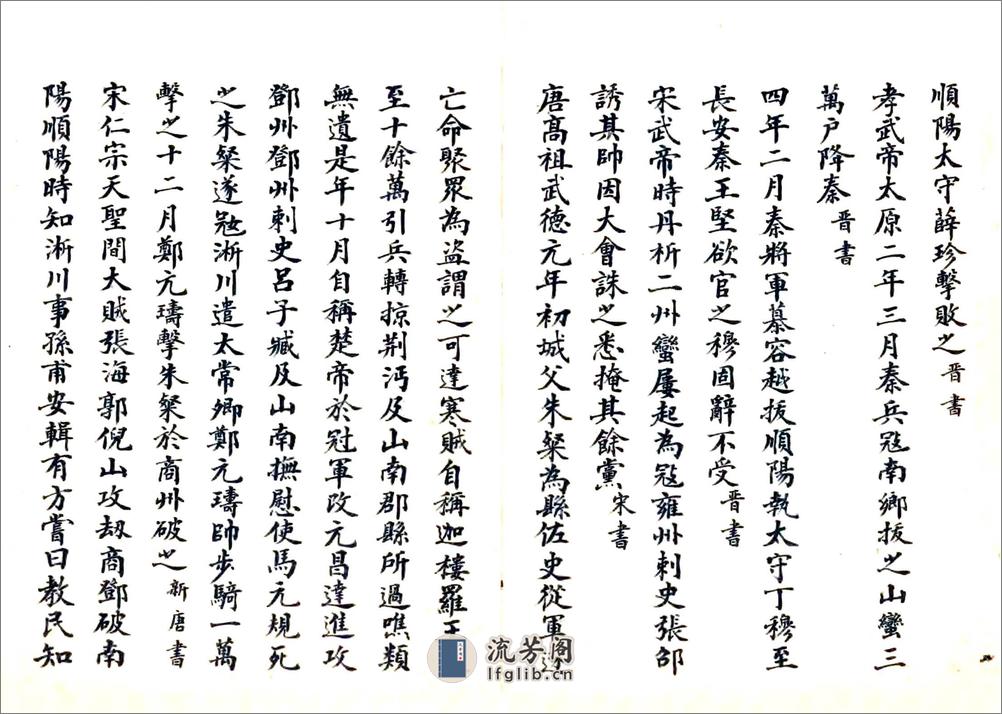 順陽太守薛珍擊敗之晉書
孝武帝太原二年三月秦兵寇南鄉拔之山蠻三
萬户降秦晉書
四年二月秦將軍慕容越拔順陽執太守丁穆至
長安秦王堅欲官之穆固辭不受晉書
宋武帝時丹析二州蠻屢起為寇雍州刺史張邵
誘其帥因大會誅之悉掩其餘黨宋書
唐高祖武德元年初城父朱粲為縣佐史從軍
亡命聚眾為盜謂之可達寒賊自稱迦樓羅王
至十餘萬引兵轉掠荆沔及山南郡縣所過噍類
無遺是年十月自稱楚帝於冠軍改元昌達進攻
鄧州鄧州刺史呂子臧及山南撫慰使馬元規死
之朱粲遂寇淅川遣太常卿鄭元璹帥步騎一萬
擊之十二月鄭元璹擊朱粲於商州破之新唐書
宋仁宗天聖間大賊張海郭倪山攻刼商鄧破南
陽順陽時知淅川事孫甫安輯有方嘗曰教民知
流芳阁
lfglib.cn